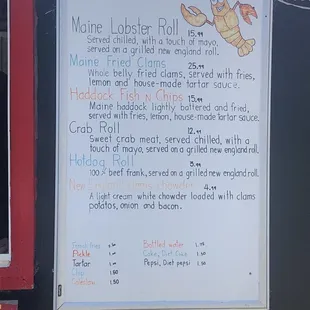 Maine Lobster Roll 15.99
Served chilled, with a touch of mayo,
served on a grilled new england roll.
Maine Fried Clams 25.99
Whole belly fried clams, served with fries,
lemon and house-made tartar sauce.
Haddock Fish 'N Chips 15.99
Maine haddock lightly battered and fried,
served with fries, lemon, house-made tartar sauce.
Crab Roll 12.99
Sweet crab meat, served chilled, with a
touch of mayo, served on a grilled new england roll.
Hotdog Roll
100% beef frank, served on a grilled new england roll.
New England clam chowder 4.99
A light cream white chowder loaded with clams
potatos, onion and bacon.
french fries
Pickle
Tartar
Slaw 1.50
Coleslaw 1.50
Bottled water
Coke, Diet Coke 1.50
Pepsi, Diet pepsi 1.50